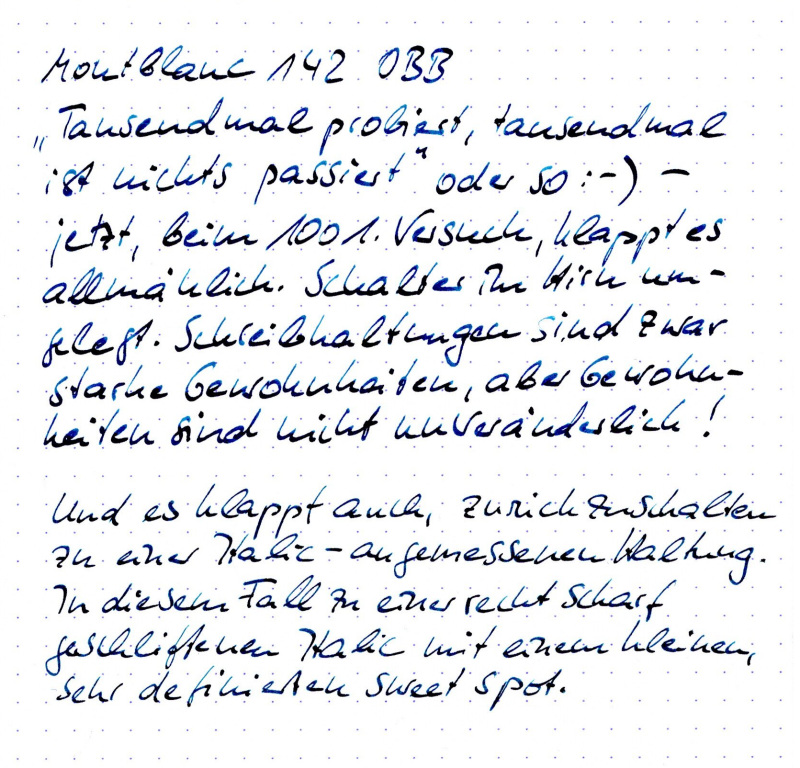 Montblanc 142 OBB
„Tausendmal probiert, tausendmal
ist nichts passiert“ oder so :-) –
jetzt, beim 1001. Versuch, klappt es
allmählich. Schalter im Hirn um-
gelegt. Schreibhaltungen sind zwar
starke Gewohnheiten, aber Gewohn-
heiten sind nicht unveränderlich!
Und es klappt auch, zurückzuschalten
zu einer Italic-angemessenen Haltung.
In diesem Fall zu einer recht scharf
geschliffenen Italic mit einem kleinen,
sehr definierten sweet spot.